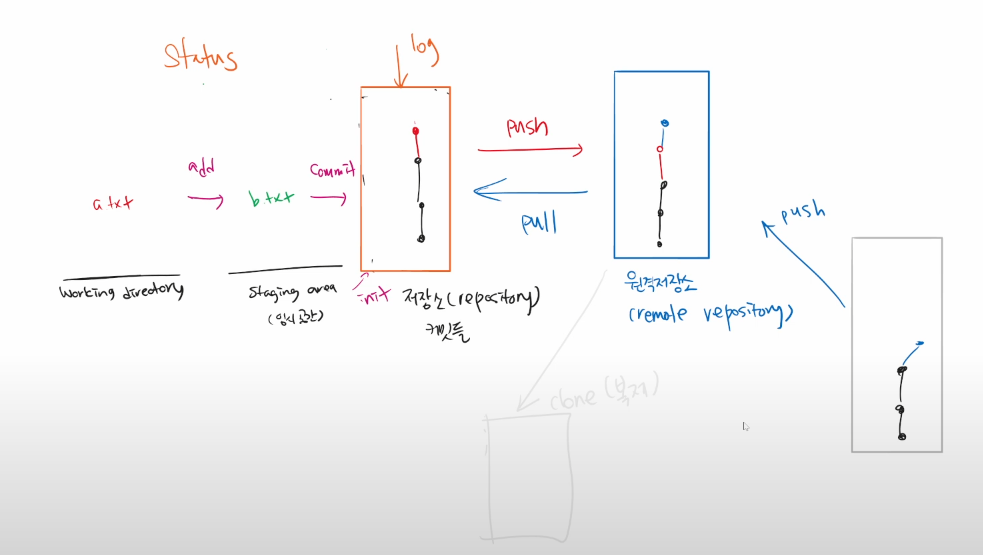 Status
log
add
commit
push
a.txt
b.txt
pull
push
Working directory
Staging area
(임시공간)
init
저장소(repository)
원격저장소
(remote repository)
clone (복제)